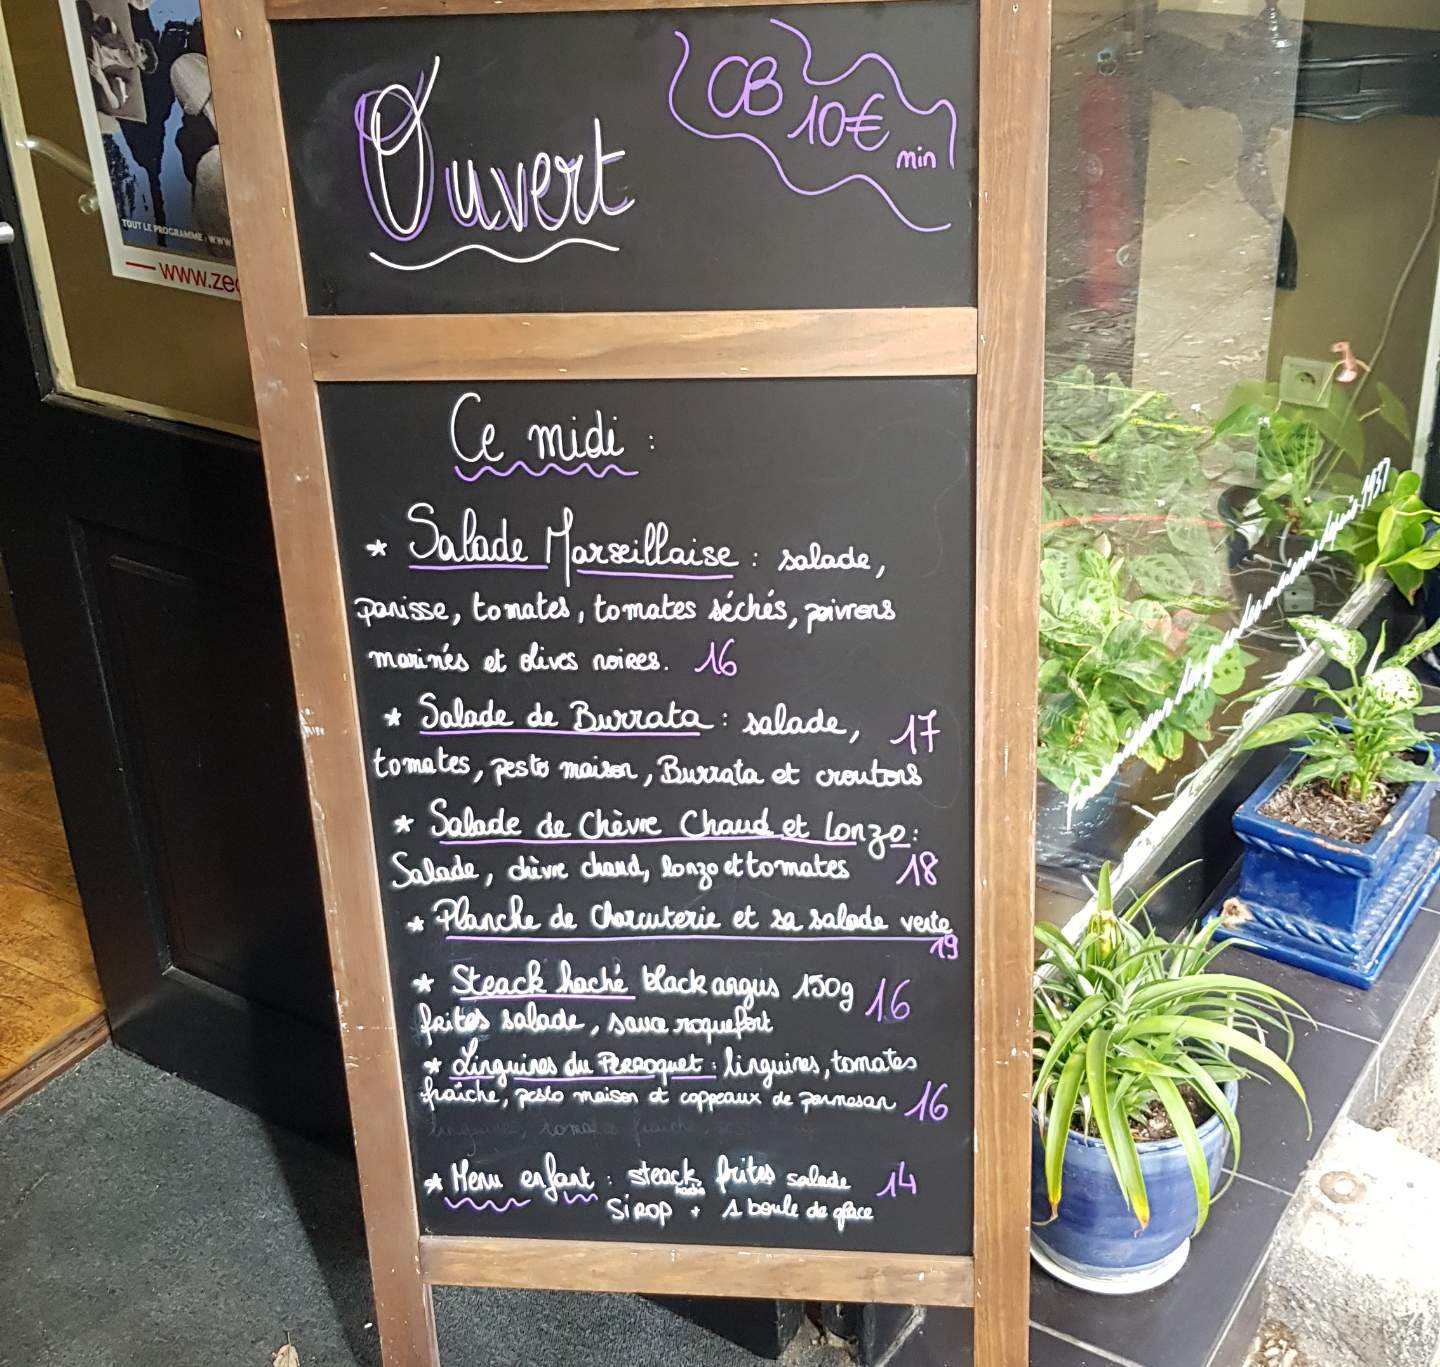 Ouvert
CB 10€ min
Ce midi :
* Salade Marseillaise : salade,
panisse, tomates, tomates séchés, poivrons
marinés et olives noires. 16
* Salade de Burrata : salade, 17
tomates, pesto maison, Burrata et croutons
* Salade de Chèvre Chaud et Lonzo :
Salade, chèvre chaud, lonzo et tomates 18
* Planche de Charcuterie et sa salade verte
19
* Steack haché black angus 150g 16
frites salade, sauce roquefort
* Linguines du Perroquet : linguines, tomates
fraîche, pesto maison et coppeaux de parmesan 16
* Menu enfant : steack haché frites salade 14
Sirop + 1 boule de glace
TOUT LE PROGRAMME : WWW.
WWW.zec
depuis 1937